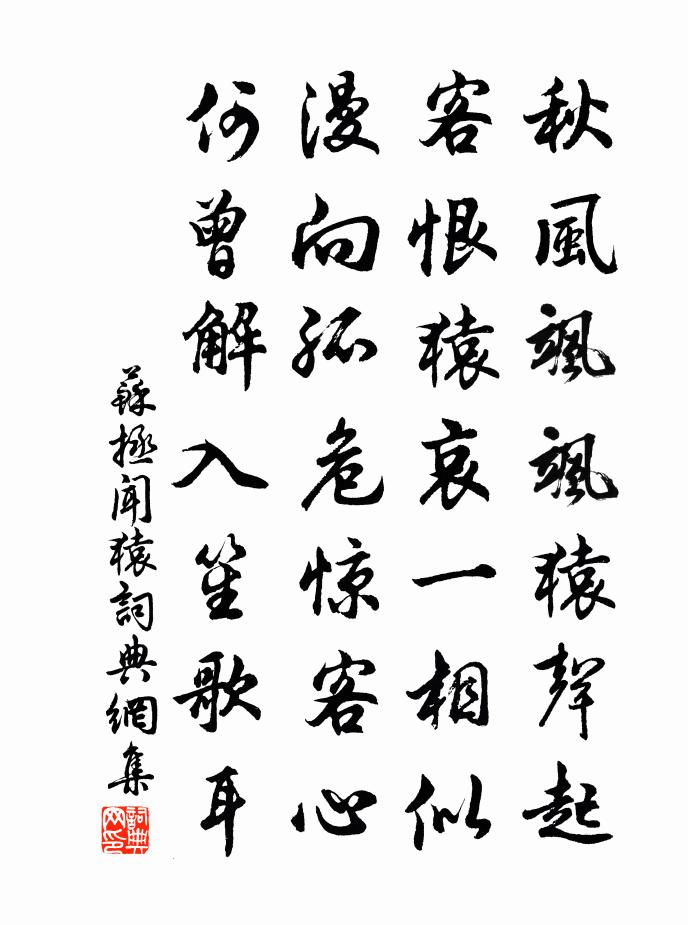 秋風颯颯猿聲起
客恨猿哀一相似
漫向孤危惊客心
何曾解入笙歌耳
蘇拯聞猿詞典網集
詞典網印